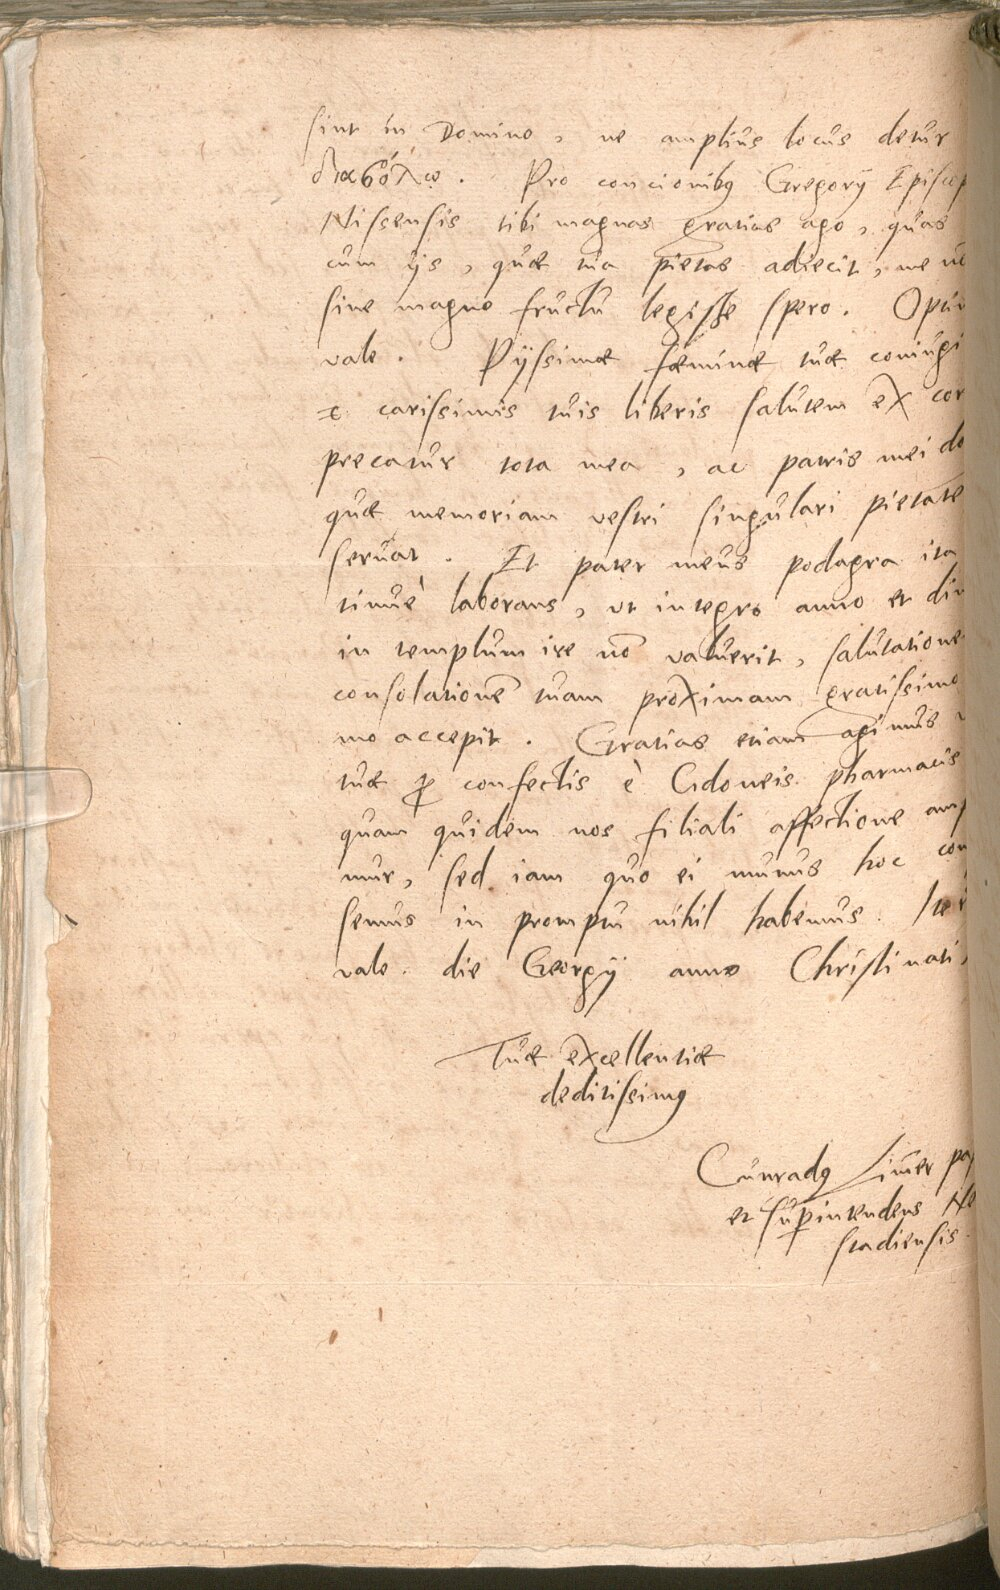 sint in Domino, ne amplius locus detur
διαβόλῳ. Pro concionibꝰ Gregorÿ Episcop
Nissensis tibi magnas gratias ago, quas
cum ijs, quæ tua pietas adiecit, me
sine magno fructu legisse spero. Opti
vale. Pijssimæ fæminæ tuæ coniugi
& carissimis tuis liberis salutem ex cor
precatur tota mea, ac patris mei do
quæ memoriam vestri singulari pietate
seruat. Et pater meus podagra ita
tinuè laborans, vt integro anno et di
in templum ire nõ valuerit, salutatione
consolationẽ tuam proximam gratissimo
mo accepit. Gratias etiam agimus
tuæ ꝓ confectis è Cidoneis pharmacis
quam quidem nos filiali affectione amp
mur, sed iam quo ei munus hoc com
semus in promptu nihil habemus. Iter
vale. die Georgÿ anno Christi nati,
Tuæ excellentiæ
deditissimꝰ
Cunradꝰ pa
et sup̱intendens Ne
stadiensis.